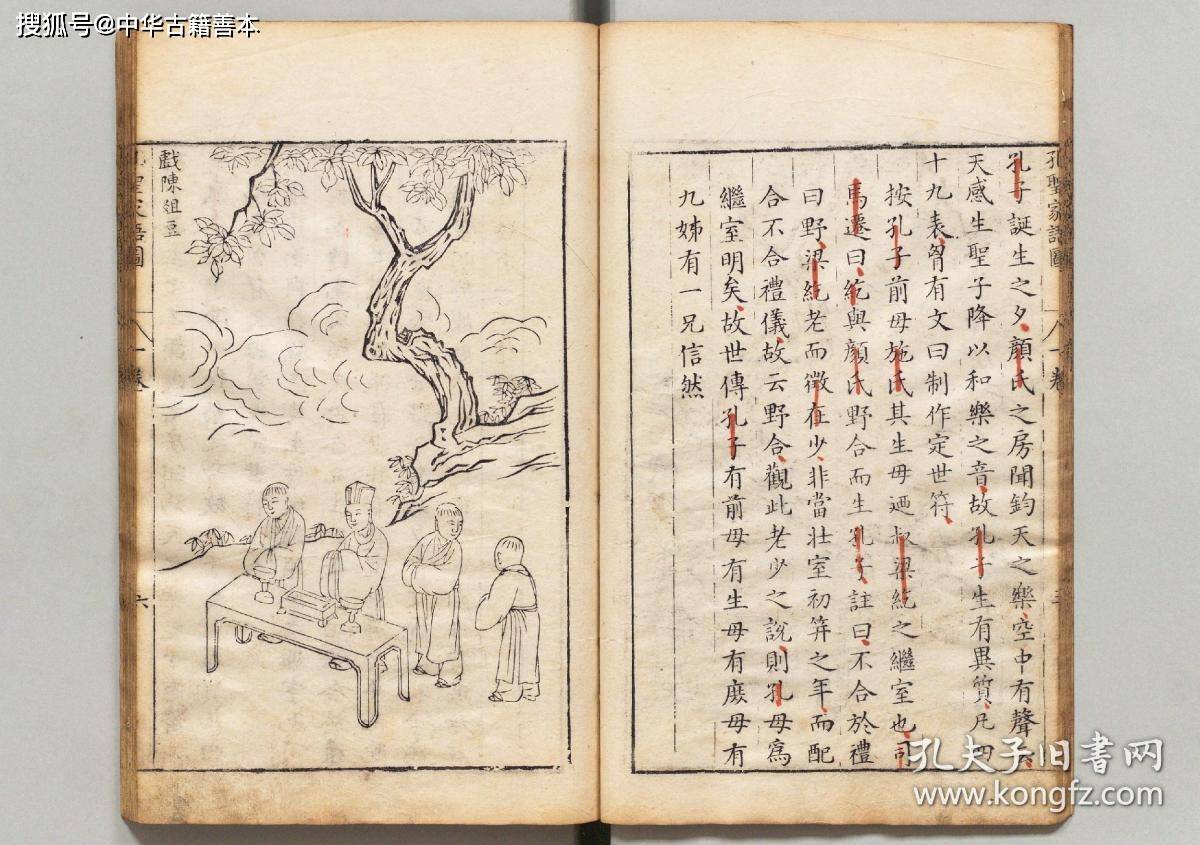 搜狐号@中华古籍善本
孔聖家語圖
一卷
孔子誕生之夕顏氏之房聞鈞天之樂空中有聲云
天感生聖子降以和樂之音故孔子生有異質凡四
十九表胷有文曰制作定世符
按孔子前母施氏其生母迺叔梁紇之繼室也司
馬遷曰紇與顏氏野合而生孔子註曰不合於禮
曰野梁紇老而徵在少非當壯室初笄之年而配
合不合禮儀故云野合觀此老少之說則孔母爲
繼室明矣故世傳孔子有前母有生母有庶母有
九姊有一兄信然
戲陳俎豆
孔聖家語圖
一卷
六
孔夫子旧书网
www.kongfz.com